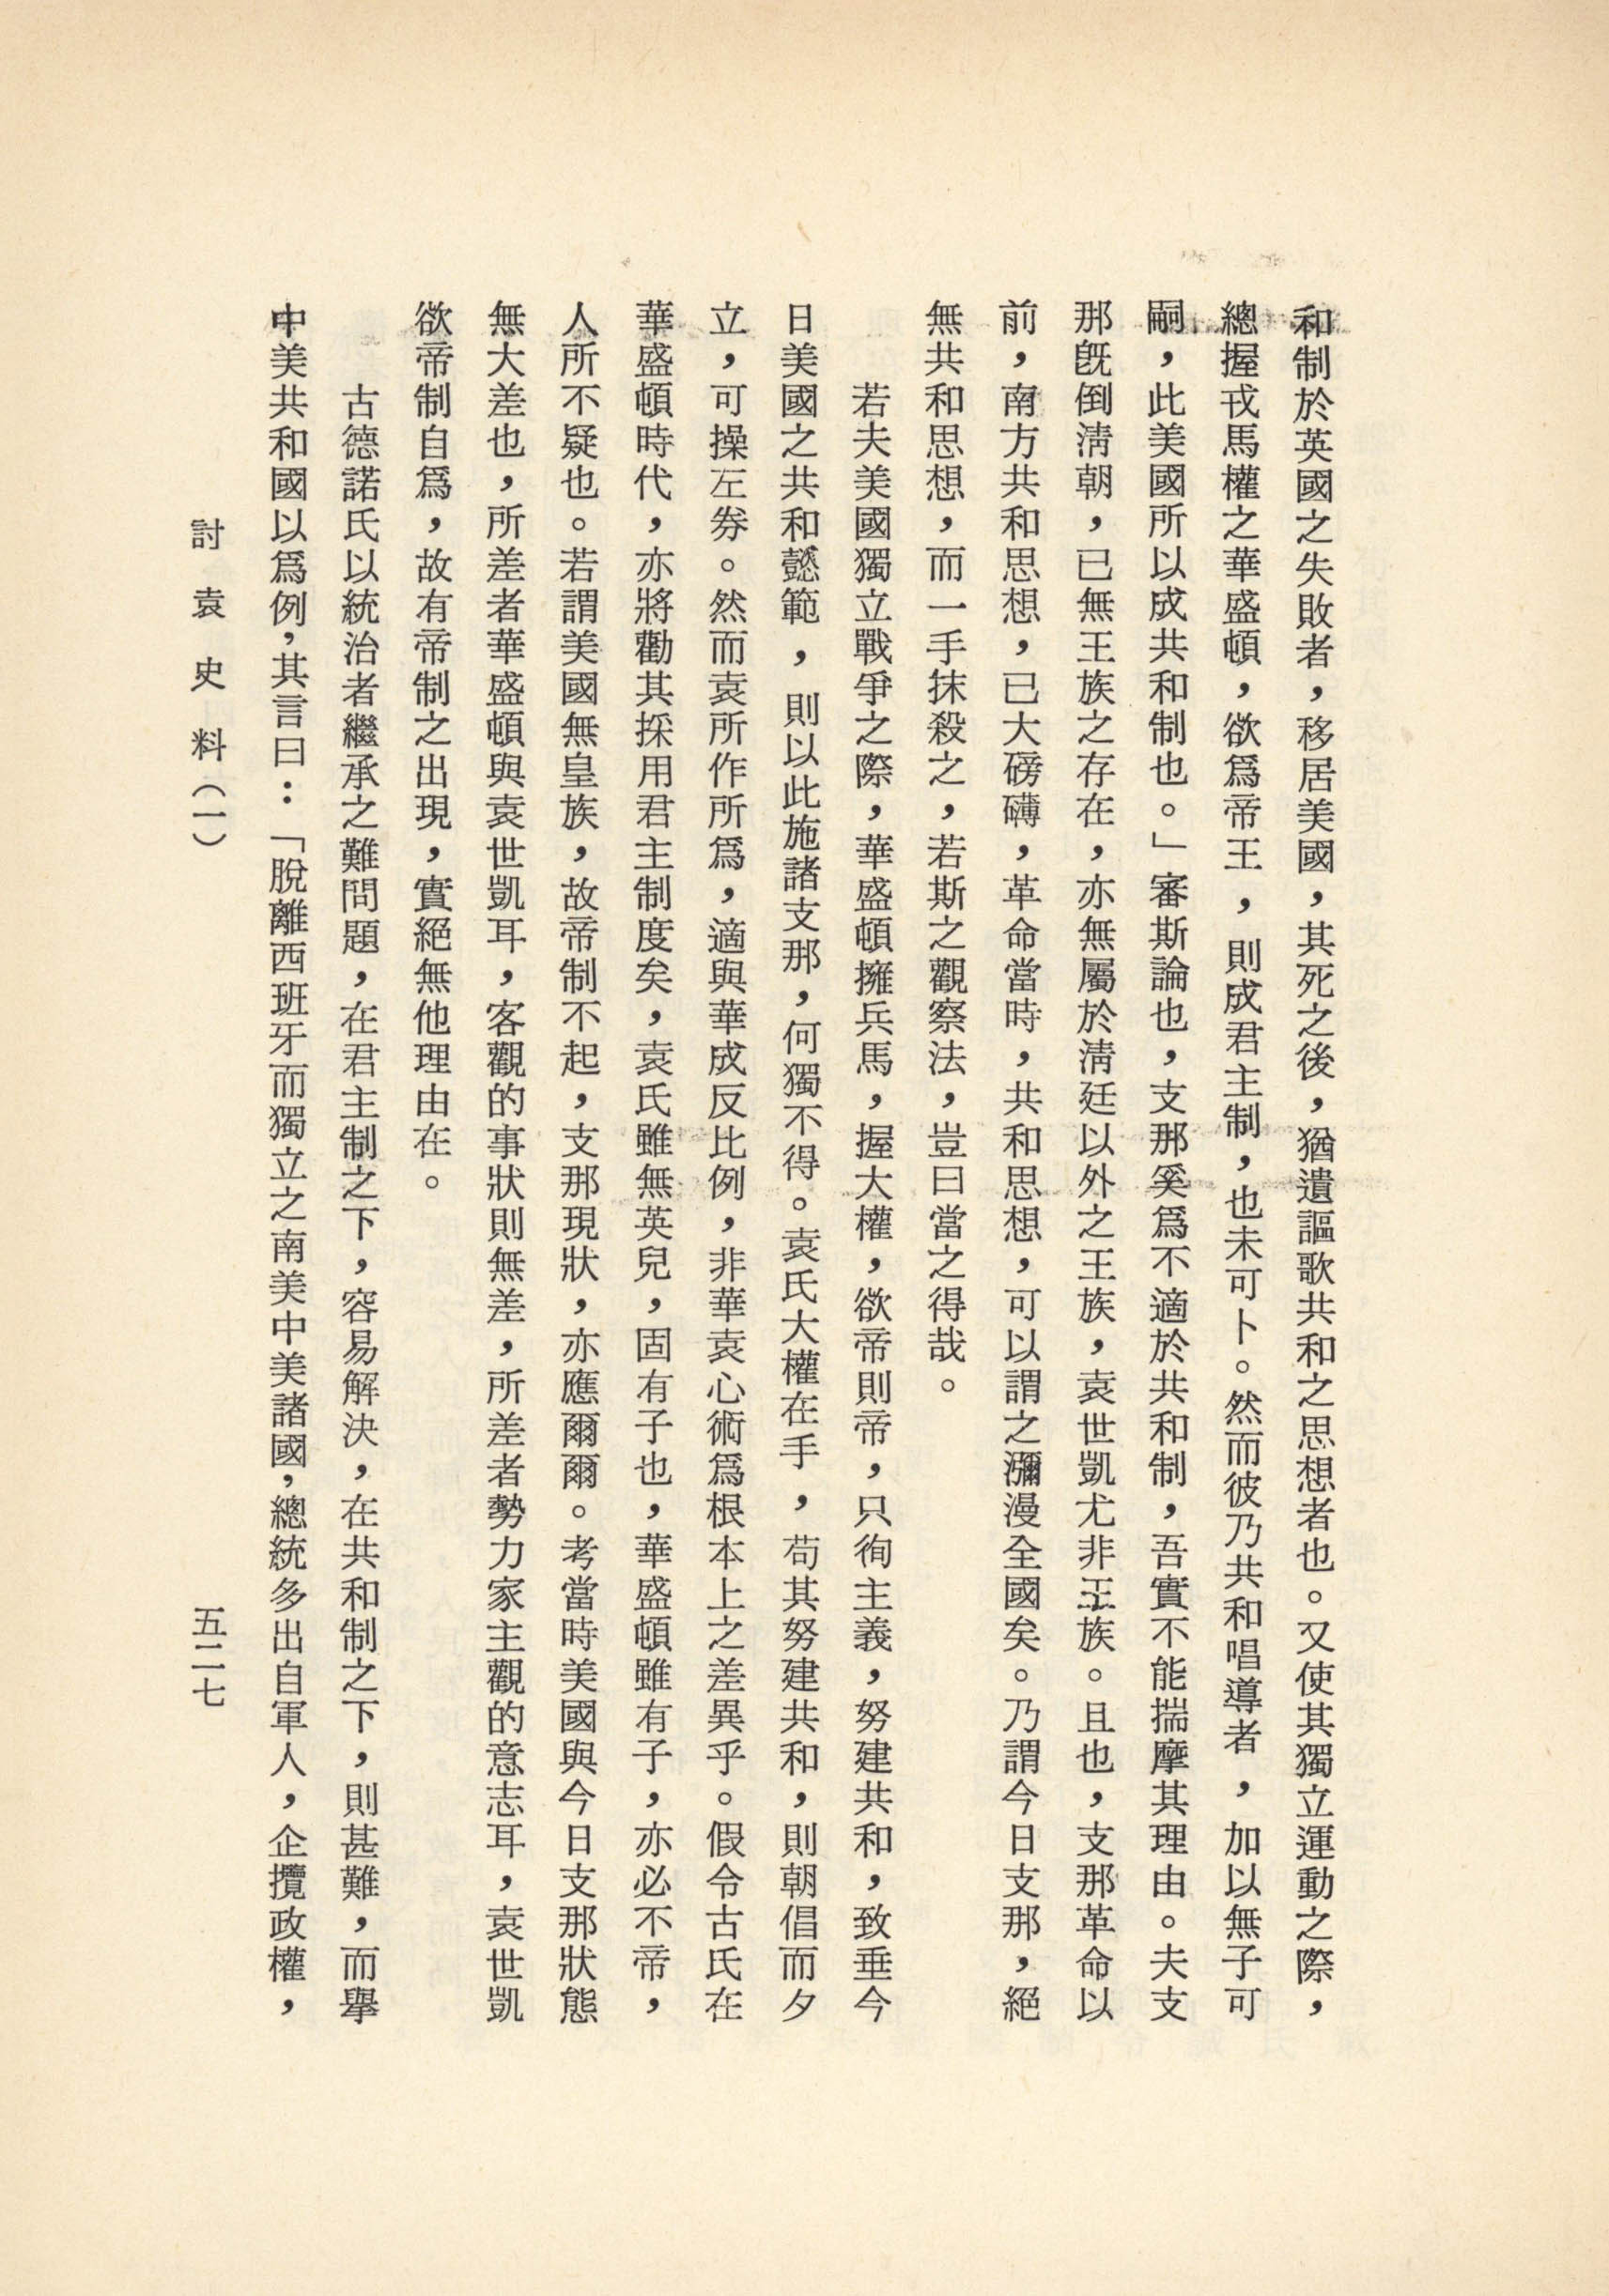 和制於英國之失敗者，移居美國，其死之後，猶遺謳歌共和之思想者也。又使其獨立運動之際，
總握戎馬權之華盛頓，欲爲帝王，則成君主制，也未可卜。然而彼乃共和唱導者，加以無子可
嗣，此美國所以成共和制也。」審斯論也，支那奚爲不適於共和制，吾實不能揣摩其理由。夫支
那旣倒淸朝，已無王族之存在，亦無屬於淸廷以外之王族，袁世凱尤非王族。且也，支那革命以
前，南方共和思想，已大磅礴，革命當時，共和思想，可以謂之瀰漫全國矣。乃謂今日支那，絕
無共和思想，而一手抹殺之，若斯之觀察法，豈曰當之得哉。
若夫美國獨立戰爭之際，華盛頓擁兵馬，握大權，欲帝則帝，只徇主義，努建共和，致垂今
日美國之共和懿範，則以此施諸支那，何獨不得。袁氏大權在手，苟其努建共和，則朝倡而夕
立，可操左券。然而袁所作所爲，適與華成反比例，非華袁心術爲根本上之差異乎。假令古氏在
華盛頓時代，亦將勸其採用君主制度矣，袁氏雖無英兒，固有子也，華盛頓雖有子，亦必不帝，
人所不疑也。若謂美國無皇族，故帝制不起，支那現狀，亦應爾爾。考當時美國與今日支那狀態
無大差也，所差者華盛頓與袁世凱耳，客觀的事狀則無差，所差者勢力家主觀的意志耳，袁世凱
欲帝制自爲，故有帝制之出現，實絕無他理由在。
古德諾氏以統治者繼承之難問題，在君主制之下，容易解決，在共和制之下，則甚難，而舉
中美共和國以爲例，其言曰：「脫離西班牙而獨立之南美中美諸國，總統多出自軍人，企攬政權，
討袁史料（一）
五二七